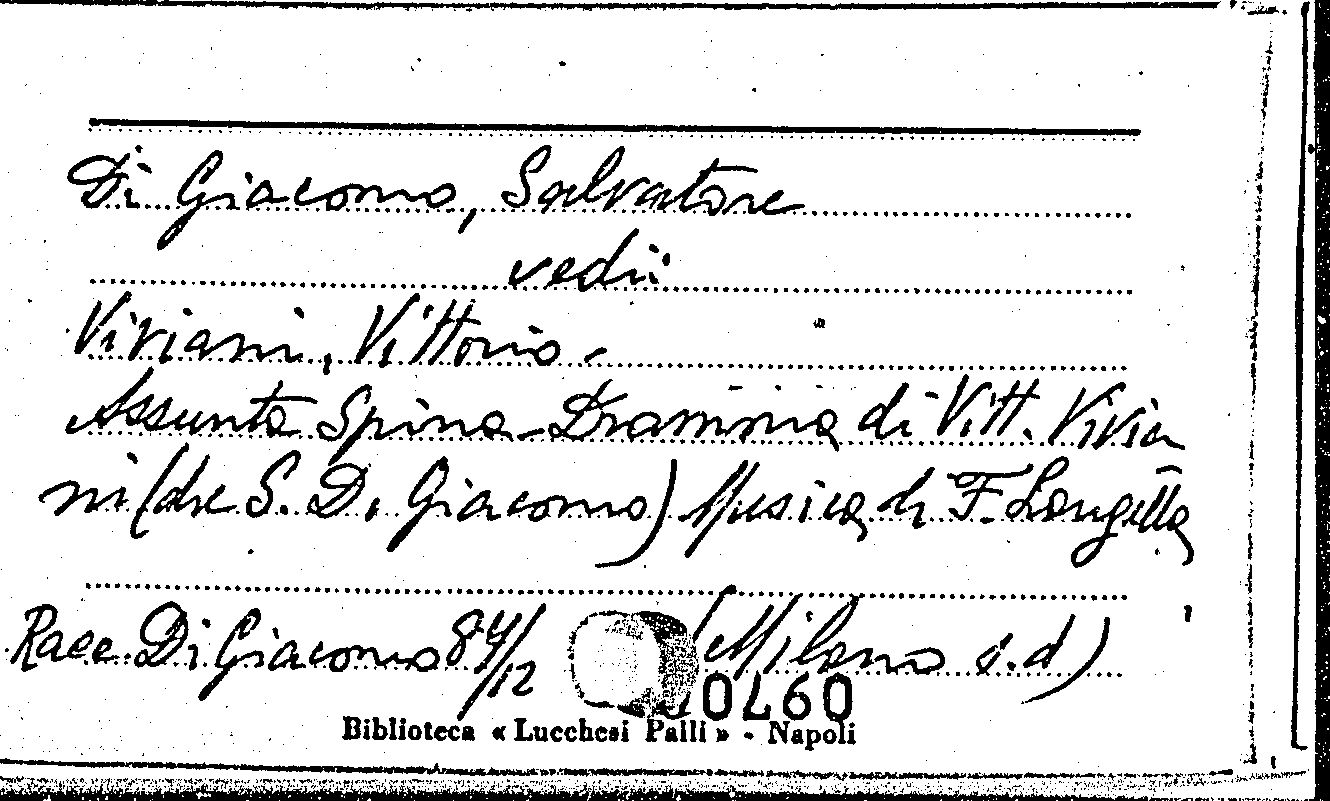 Di Giacomo, Salvatore
vedi:
Viviani, Vittorio.
Assunta Spina - Dramma di Vitt. Vivia
ni (da S. Di Giacomo) Musica di F. Langella
Racc. Di Giacomo 84/12 (Milano s.d)
0460
Biblioteca « Lucchesi Palli » - Napoli